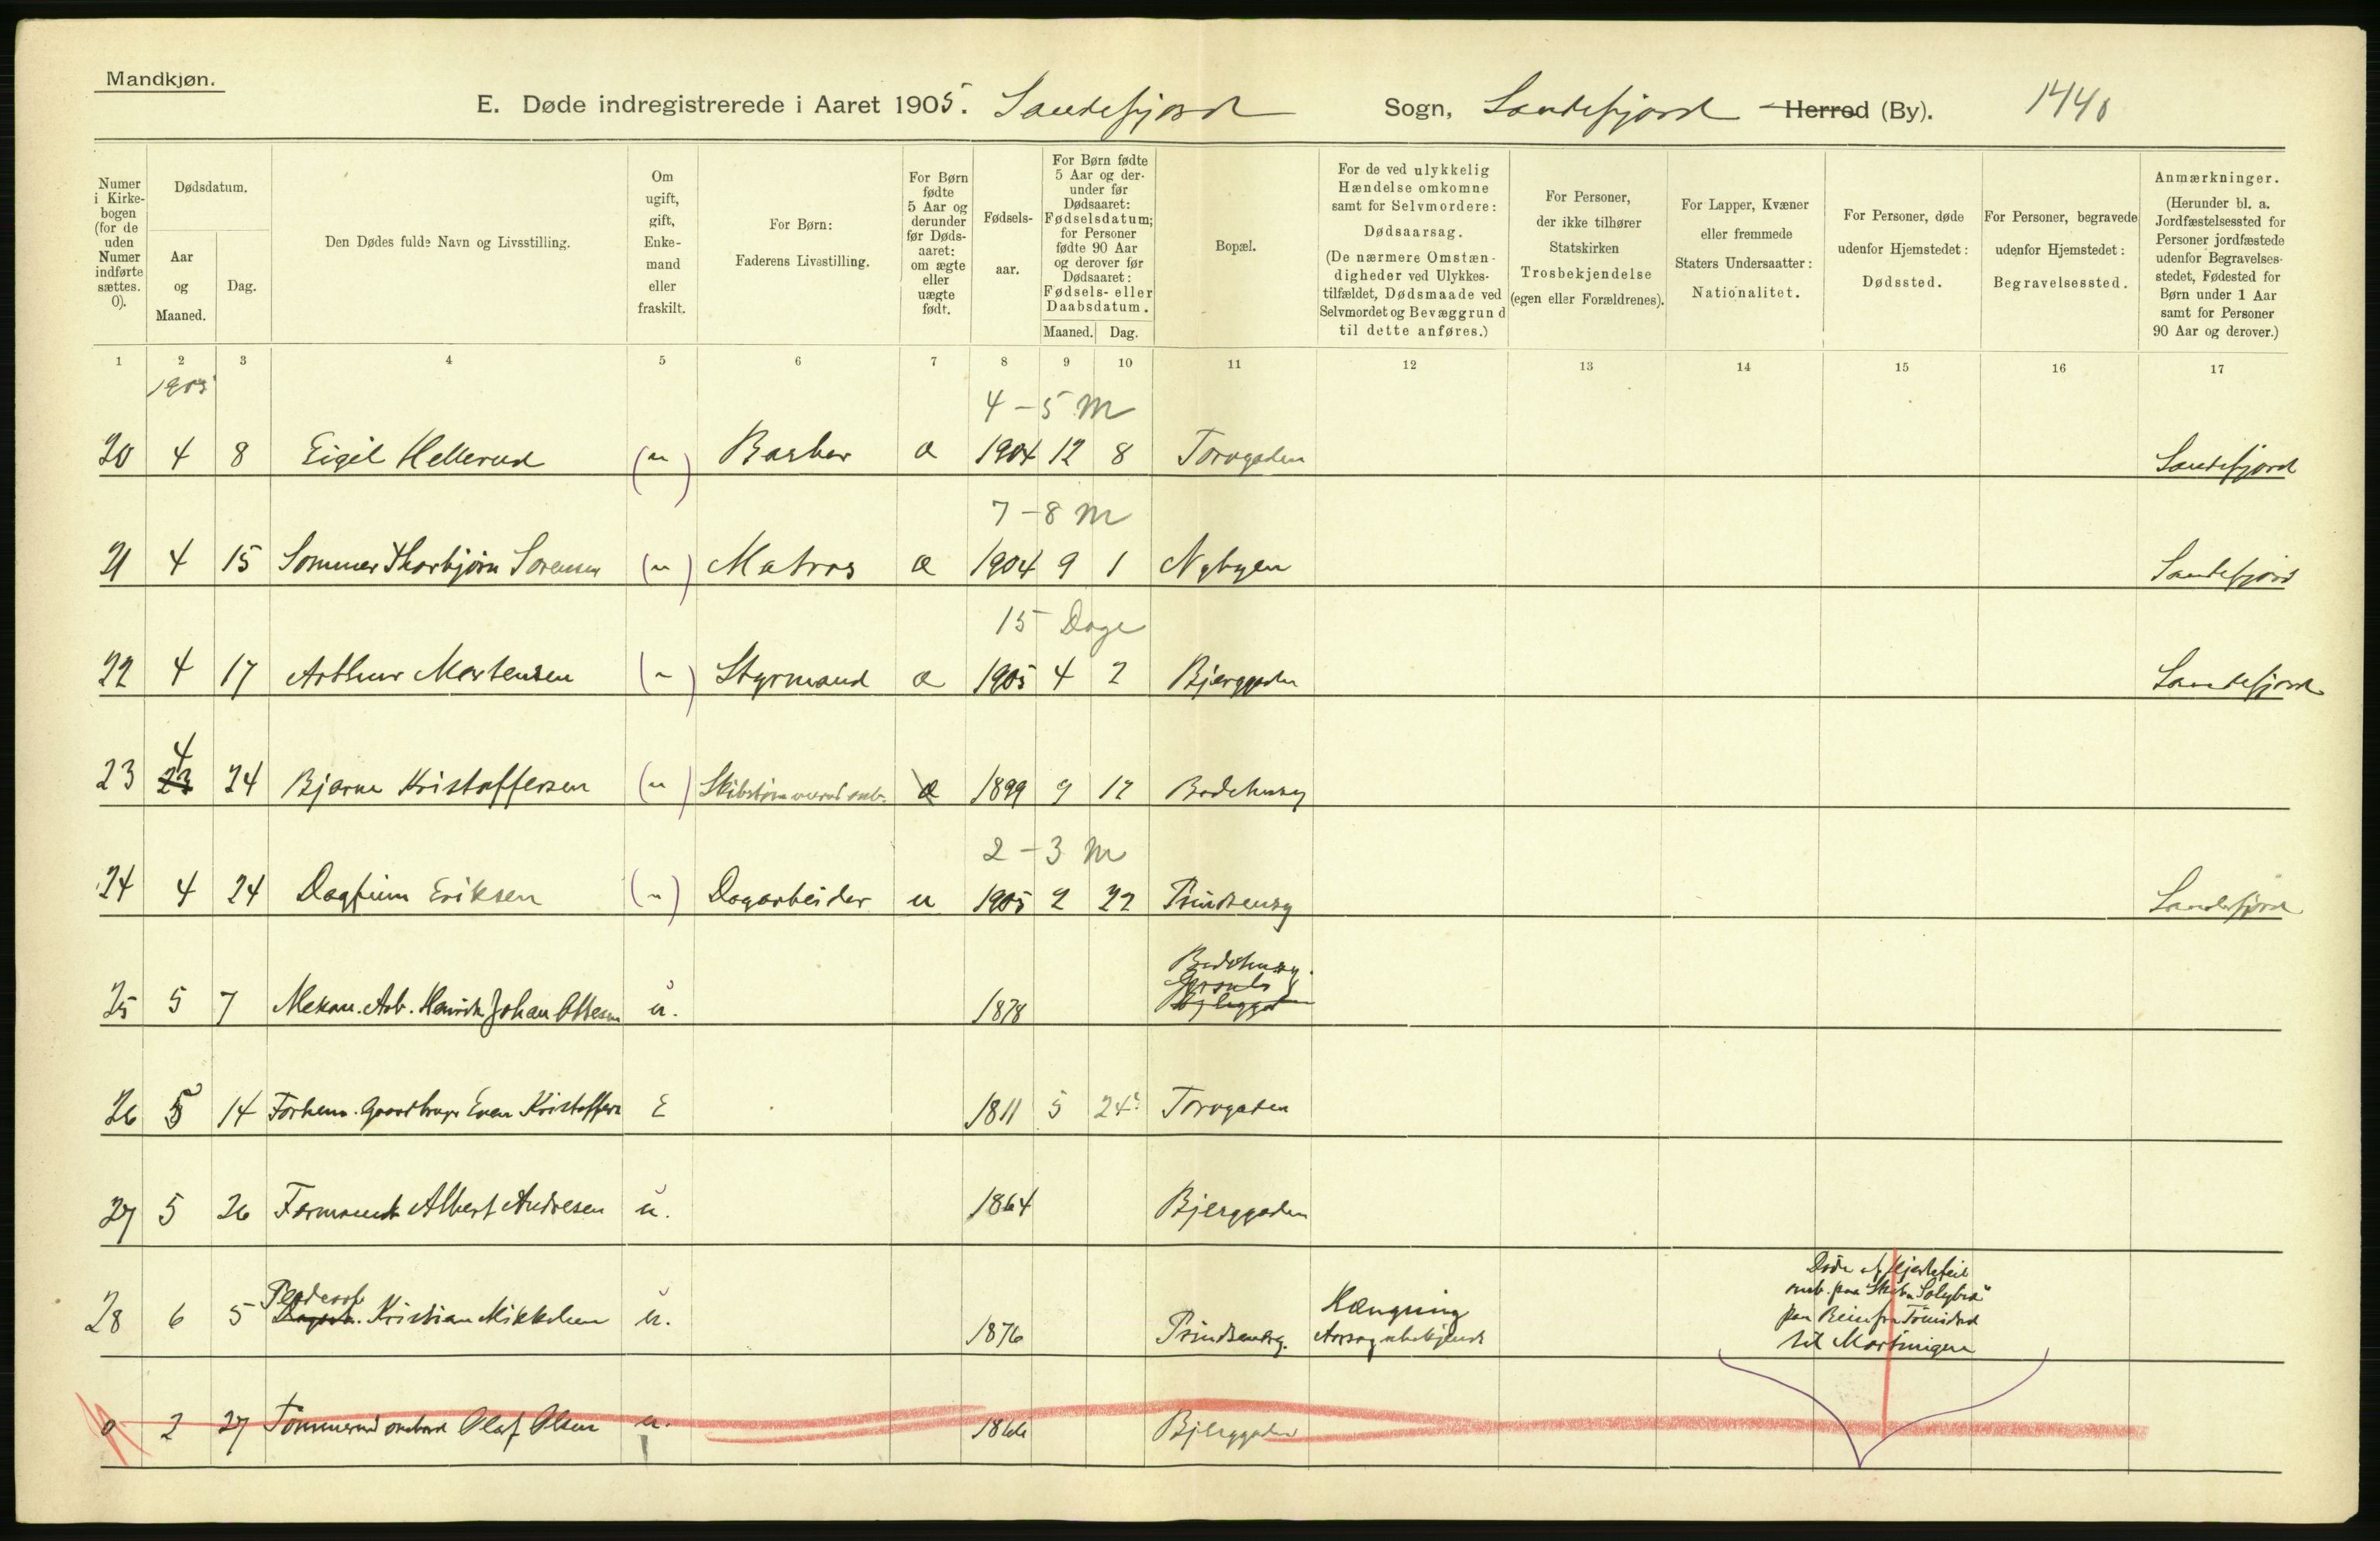 Mandkjøn.
E. Døde indregistrerede i Aaret 1905. Sandefjord Sogn, Sandefjord Herred (By). 1440
Numer i Kirkebogen (for de uden Numer indførte sættes. 0).
Dødsdatum.
Aar og Maaned.
Dag.
Den Dødes fulde Navn og Livsstilling.
Om ugift, gift, Enkemand eller fraskilt.
For Børn: Faderens Livsstilling.
For Børn fødte 5 Aar og derunder før Dødsaaret: om ægte eller uægte født.
Fødselsaar.
For Børn fødte 5 Aar og derunder før Dødsaaret: Fødselsdatum; for Personer fødte 90 Aar og derover før Dødsaaret: Fødsels- eller Daabsdatum.
Maaned. Dag.
Bopæl.
For de ved ulykkelig Hændelse omkomne samt for Selvmordere: Dødsaarsag. (De nærmere Omstændigheder ved Ulykkestilfældet, Dødsmaade ved Selvmordet og Bevæggrund til dette anføres.)
For Personer, der ikke tilhører Statskirken Trosbekjendelse (egen eller Forældrenes).
For Lapper, Kvæner eller fremmede Staters Undersaatter: Nationalitet.
For Personer, døde udenfor Hjemstedet: Dødssted.
For Personer, begravede udenfor Hjemstedet: Begravelsessted.
Anmærkninger. (Herunder bl. a. Jordfæstelsessted for Personer jordfæstede udenfor Begravelsesstedet, Fødested for Børn under 1 Aar samt for Personer 90 Aar og derover.)
1 2 3 4 5 6 7 8 9 10 11 12 13 14 15 16 17
1905
4 - 5 M
20 4 8 Eigil Hellerud (u) Barber æ 1904 12 8 Torvgaden Sandefjord
7 - 8 M
21 4 15 Sommer Thorbjørn Sørensen (u) Matros æ 1904 9 1 Nybyen Sandefjord
15 Dage
22 4 17 Arthur Mortensen (u) Styrmand æ 1905 4 2 Bjerggaden Sandefjord
4
23 23 24 Bjarne Kristoffersen (u) æ 1899 9 12
2 - 3 M
24 4 24 Dagfinn Eriksen (u) Dagarbeider u 1905 2 22 Prindsensg Sandefjord
25 5 7 Mekan. Arb. Henrik Johan Ottesen u. 1878
26 5 14 Forhenv. Gaardbruger Even Kristoffers E 1811 5 24 Torvgaden
27 5 26 Formand Albert Andresen u. 1864 Bjerggaden
28 6 5 Kristian Mikkelsen u. 1876 Prindsensg. Hængning
Aarsag ubekjendt
Døde af Hjertefeil
omb. paa
paa Reise fra Trinidad
til Martinique
0 2 27 Tømmermand ombord Olaf Olsen u. 1866 Bjerggaden